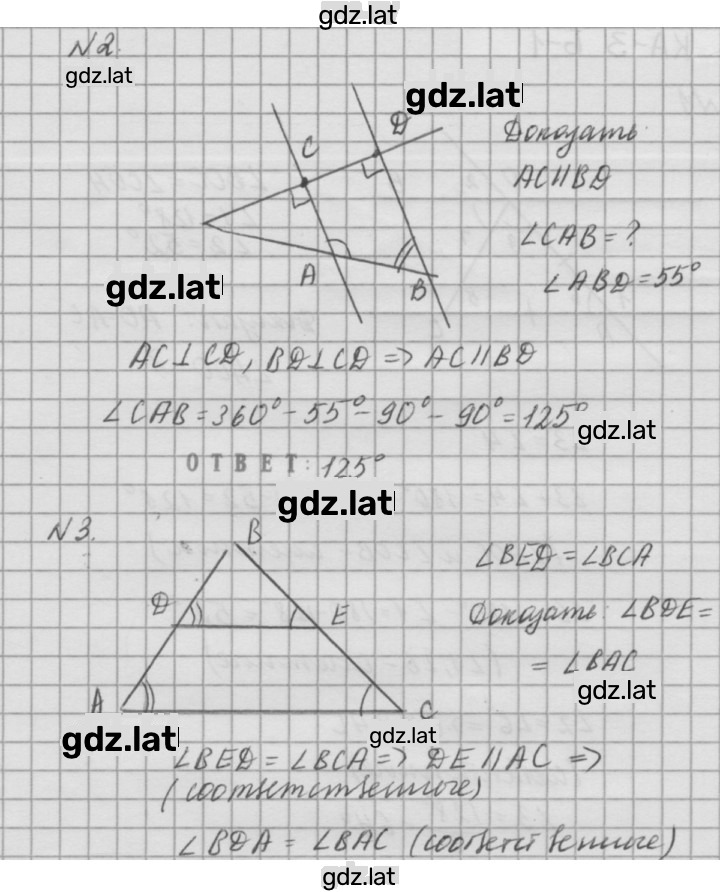 gdz.latl
N2.
gdz.lat
gdz.latl
D
C
A
B
Доказать:
AC||BD
∠CAB=?
∠ABD=55°
gdz.latl
AC⊥CD, BD⊥CD => AC||BD
∠CAB=360°-55°-90°-90°=125°
gdz.lat
ОТВЕТ: 125°
gdz.latl
N3.
B
D
E
A
C
∠BED=∠BCA
Доказать: ∠BDE=
=∠BAC
gdz.lat
gdz.latl
gdz.lat
∠BED=∠BCA=> DE||AC =>
(соответственные)
∠BDA=∠BAC (соответственные)
gdz.lat